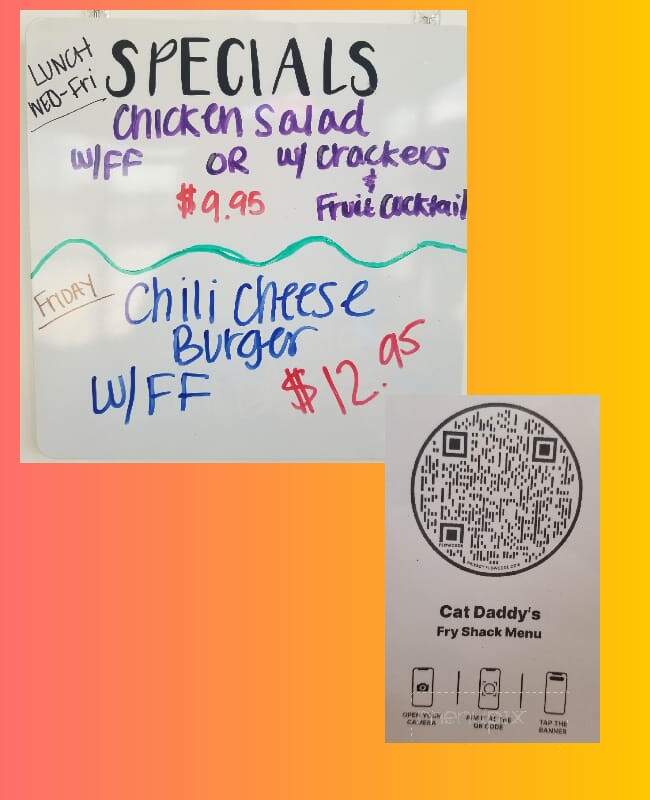 LUNCH
WED-Fri
SPECIALS
Chicken Salad
W/FF OR w/ Crackers
&
$9.95 Fruit Cocktail
FRIDAY
Chili Cheese
Burger
W/FF $12.95
FLOWCODE
PRIVACY.FLOWCODE.COM
Cat Daddy's
Fry Shack Menu
OPEN YOUR
CAMERA
AIM IT AT THE
QR CODE
TAP THE
BANNER